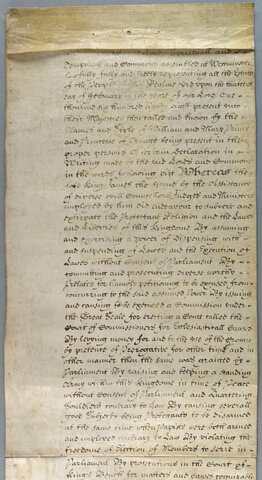 Lords Spirituall and
Temporall and Commons assembled at Westminster
lawfully fully and freely representing all the Estates
of the People of this Realme did upon the thirteenth
day of February in the yeare of our Lord One
thousand six hundred eighty eight present unto
their Majesties then called and known by the
Names and Stile of William and Mary Prince
and Princesse of Orange being present in their
proper Persons a certain Declaration in
Writing made by the said Lords and Commons
in the words following viz Whereas the
late King James the Second by the Assistance
of diverse evill Councellors Judges and Ministers
imployed by him did endeavour to subvert and
extirpate the Protestant Religion and the Lawes
and Liberties of this Kingdome By assuming
and exercising a power of Dispensing with
and suspending of Lawes and the Execution of
Lawes without Consent of Parliament By
committing and prosecuting diverse worthy
Prelates for humbly petitioning to be excused from
concurring to the said assumed Power By issuing
and causing to be executed a Commission under
the Great Seale for erecting a Court called the
Court of Commissioners for Ecclesiasticall Causes
By levying money for and to the use of the Crowne
by pretence of Prerogative for other time and in
other manner then the same was granted by
Parliament By raising and keeping a standing
Army within this Kingdome in time of Peace
without Consent of Parliament and Quartering
Souldiers contrary to Law By causing severall
good Subjects being Protestants to be disarmed
at the same time when Papists were both armed
and imployed contrary to Law By violating the
freedome of Election of Members to serve in
Parliament By prosecutions in the Court of
Kings Bench for matters and causes cognizable